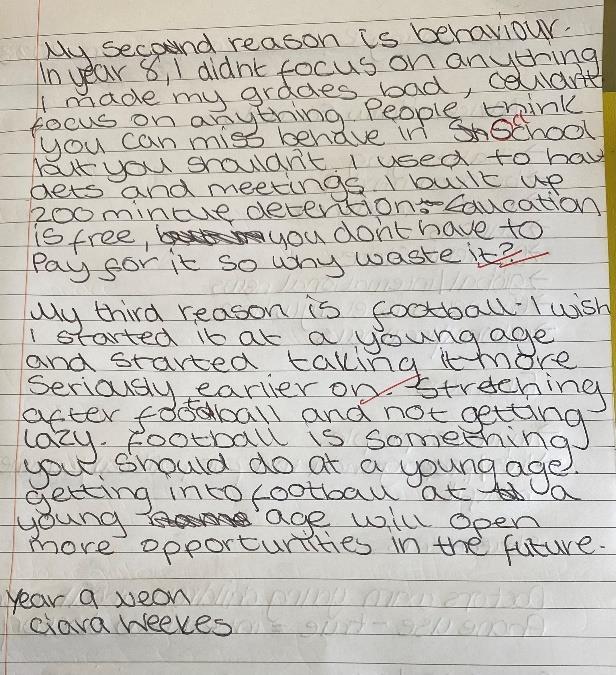 My second reason is behaviour.
In year 8, I didnt focus on anything
I made my grdaes bad, couldnt
focus on anything. People think
you can miss behave in School
but you shouldn't. I used to hav
dets and meetings. I built up
200 mintue detention. Education
is free, you dont have to
Pay for it so why waste it?
My third reason is football. I wish
I started it at a young age
and started taking it more
Seriously earlier on. Stretching
after football and not getting
lazy. Football is something
you should do at a young age.
getting into football at a
young age will open
more opportunities in the future.
Year 9
Ciara Weekes